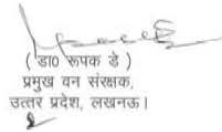 ( डा0 रूपक डे )
प्रमुख वन संरक्षक,
उत्तर प्रदेश, लखनऊ।